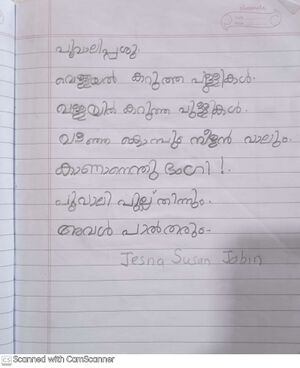 പൂവാലിപ്പശു.
വെള്ളയിൽ കറുത്ത പുള്ളികൾ.
വള്ളയിൽ കറുത്ത പുള്ളികൾ.
വളഞ്ഞ കൊമ്പും നീളൻ വാലും.
കാണാനെന്തു ഭംഗി!.
പൂവാലി പുല്ല് തിന്നും.
അവൾ പാൽ തരും.
Jesna Susan Jobin
Scanned with CamScanner